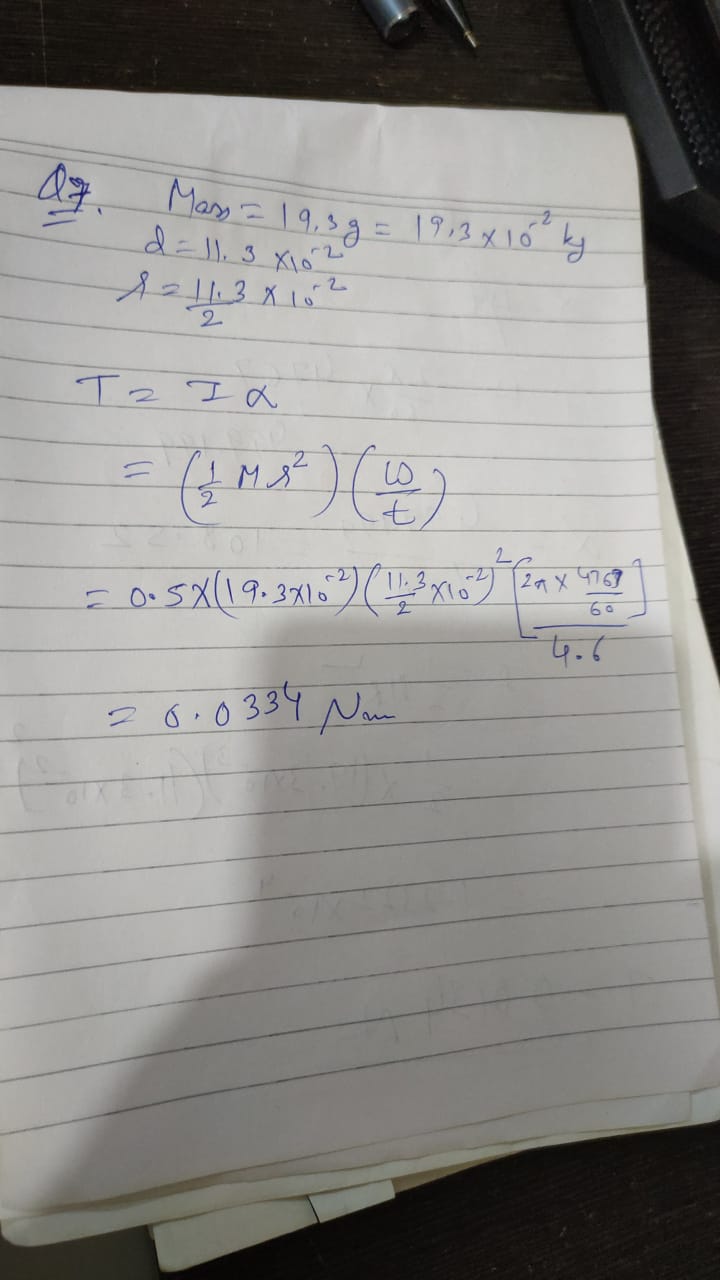 Q7. Mass = 19.3g = 19.3 × 10⁻² kg
d = 11.3 × 10⁻²
r = 11.3/2 × 10⁻²
T = I α
= (1/2 M r²) (ω/t)
= 0.5 × (19.3×10⁻²) (11.3/2 × 10⁻²)² [2π × 4767/60]/4.6
= 0.0334 Nm